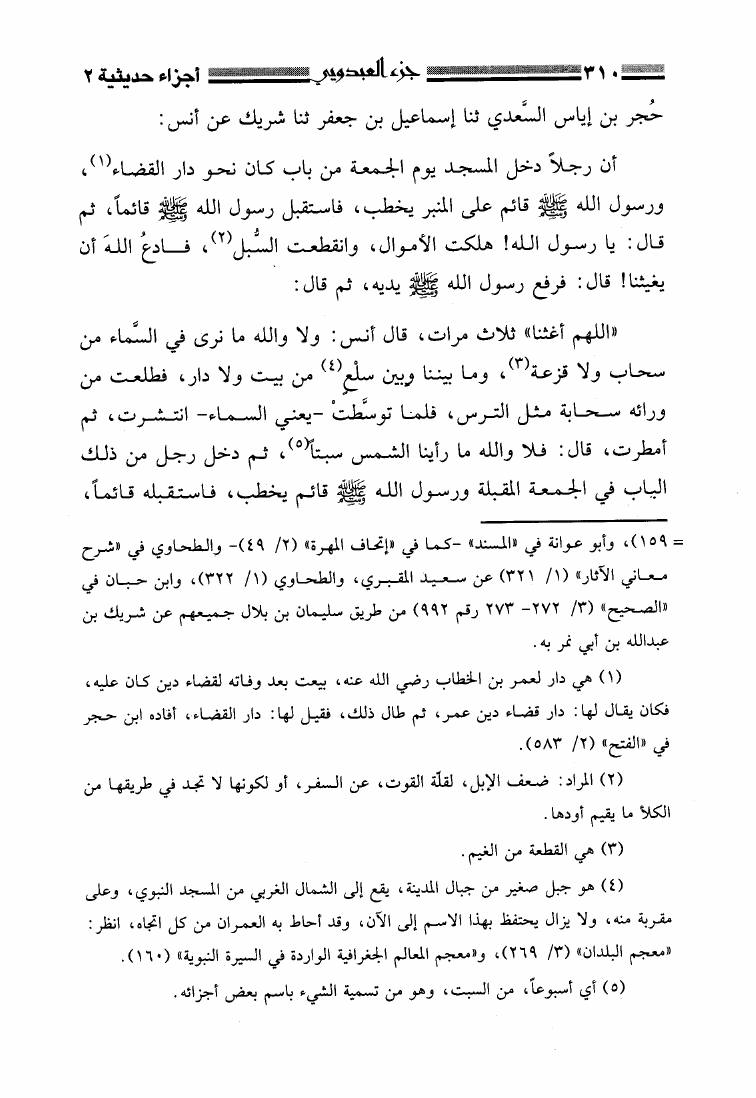 ٣١٠ جزء العبدويي أجزاء حديثية ٢
حُجر بن إياس السَّعدي ثنا إسماعيل بن جعفر ثنا شريك عن أنس:
أن رجلاً دخل المسجد يوم الجمعة من باب كان نحو دار القضاء(١)،
ورسول الله ﷺ قائم على المنبر يخطب، فاستقبل رسول الله ﷺ قائماً، ثم
قال: يا رسول الله! هلكت الأموال، وانقطعت السُّبل(٢)، فادعُ اللهَ أن
يغيثنا! قال: فرفع رسول الله ﷺ يديه، ثم قال:
«اللهم أغثنا» ثلاث مرات، قال أنس: ولا والله ما نرى في السَّماء من
سحاب ولا قزعة(٣)، وما بيننا وبين سلْعٍ(٤) من بيت ولا دار، فطلعت من
ورائه سحابة مثل الترس، فلما توسَّطتْ -يعني السماء- انتشرت، ثم
أمطرت، قال: فلا والله ما رأينا الشمس سبتاً(٥)، ثم دخل رجل من ذلك
الباب في الجمعة المقبلة ورسول الله ﷺ قائم يخطب، فاستقبله قائماً،
= ١٥٩)، وأبو عوانة في «المسند» -كما في «إتحاف المهرة» (٢/ ٤٩)- والطحاوي في «شرح
معاني الآثار» (١/ ٣٢١) عن سعيد المقبري، والطحاوي (١/ ٣٢٢)، وابن حبان في
«الصحيح» (٣/ ٢٧٢- ٢٧٣ رقم ٩٩٢) من طريق سليمان بن بلال جميعهم عن شريك بن
عبدالله بن أبي نمر به.
(١) هي دار لعمر بن الخطاب رضي الله عنه، بيعت بعد وفاته لقضاء دين كان عليه،
فكان يقال لها: دار قضاء دين عمر، ثم طال ذلك، فقيل لها: دار القضاء، أفاده ابن حجر
في «الفتح» (٢/ ٥٨٣).
(٢) المراد: ضعف الإبل، لقلّة القوت، عن السفر، أو لكونها لا تجد في طريقها من
الكلأ ما يقيم أودها.
(٣) هي القطعة من الغيم.
(٤) هو جبل صغير من جبال المدينة، يقع إلى الشمال الغربي من المسجد النبوي، وعلى
مقربة منه، ولا يزال يحتفظ بهذا الاسم إلى الآن، وقد أحاط به العمران من كل اتجاه، انظر:
«معجم البلدان» (٣/ ٢٦٩)، و«معجم المعالم الجغرافية الواردة في السيرة النبوية» (١٦٠).
(٥) أي أسبوعاً، من السبت، وهو من تسمية الشيء باسم بعض أجزائه.